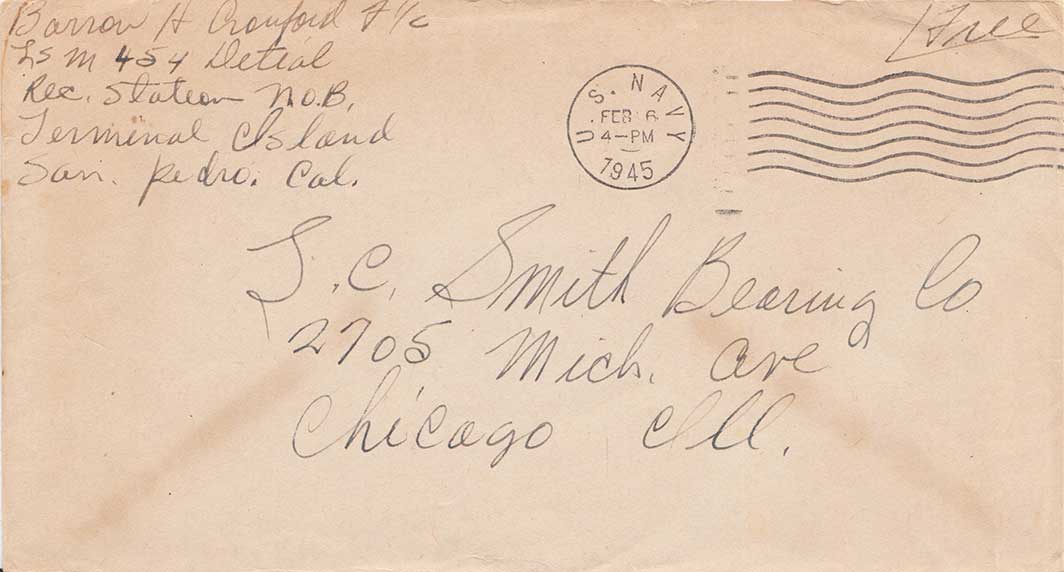 Barrow H Crauford F 1/c
LSM 454 Detial
Rec. Station N.O.B.
Terminal Island
San. Pedro. Cal.
Free
U.S. NAVY
FEB 6
4-PM
1945
S.C. Smith Bearing Co
2705 Mich. Ave
Chicago Ill.